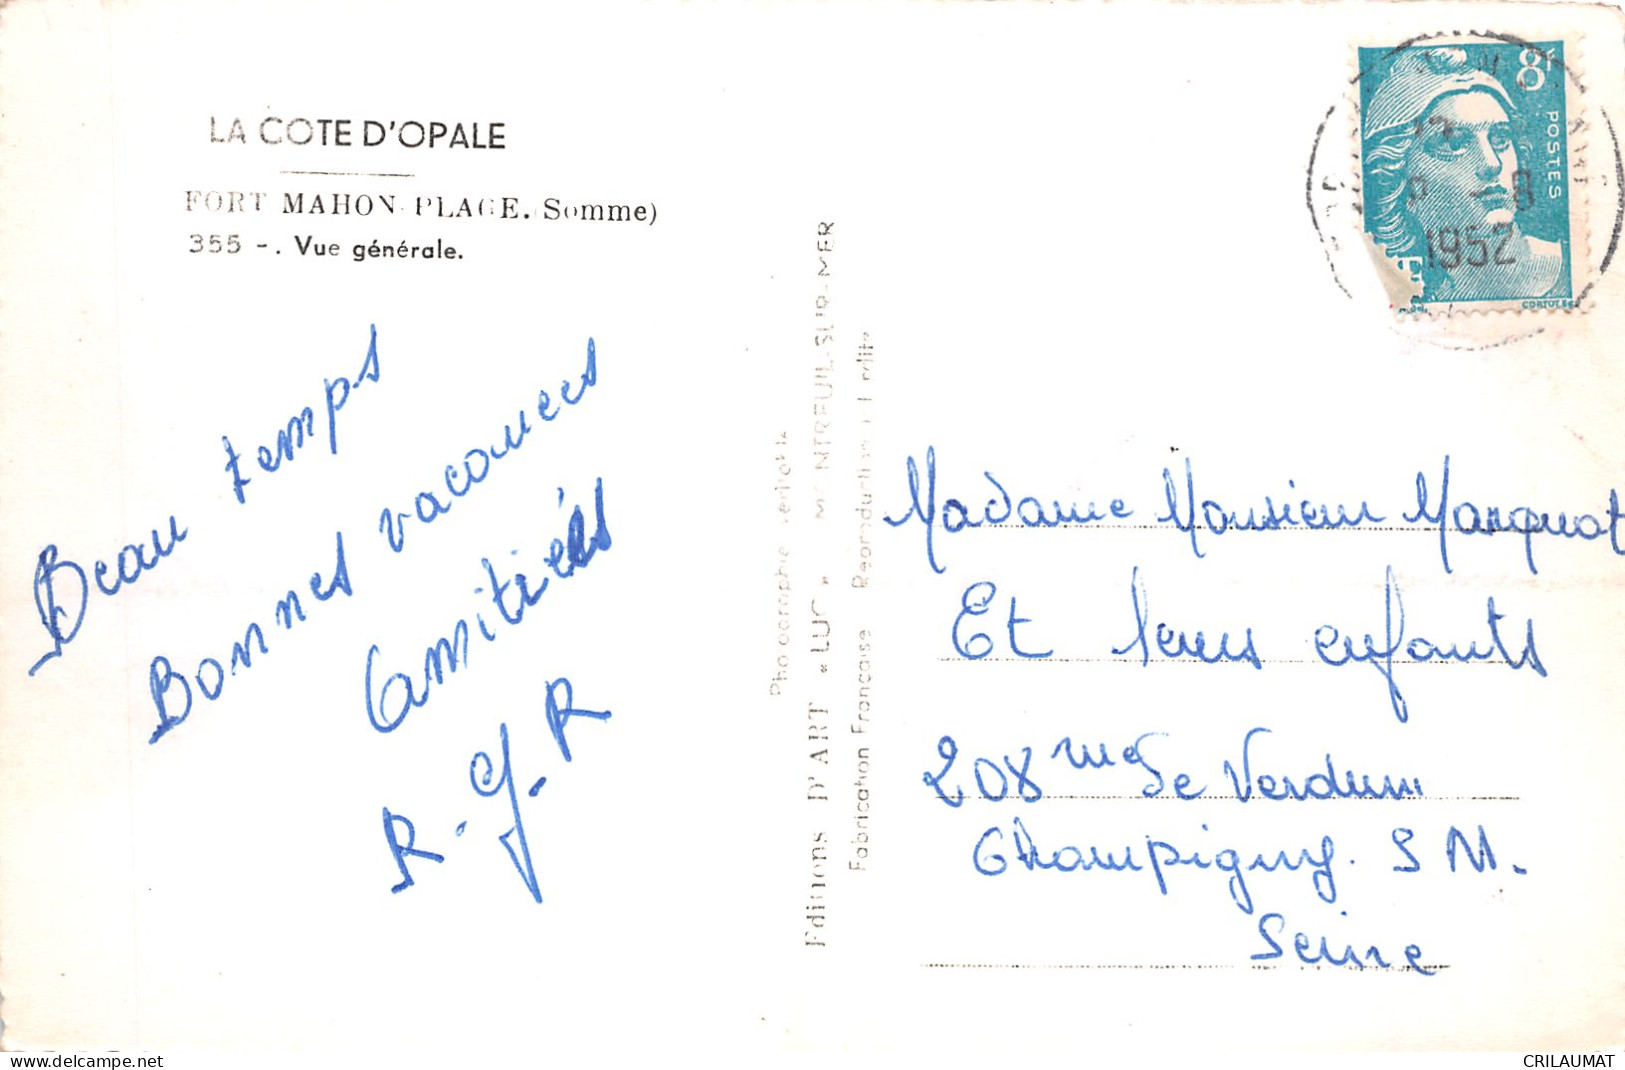 LA COTE D'OPALE
FORT MAHON-PLAGE. (Somme)
355 -. Vue générale.
Beau temps
Bonnes vacances
Amitiés
R. J. R
Photographie véritable
Editions D'ART « LUC » MONTREUIL-SUR-MER
Fabrication Française Reproduction interdite
8F
POSTES
8
1952
Madame Monsieur Marquat
Et leurs enfants
208 rue de Verdun
Champigny. S M.
Seine
delcampe.net
CRILAUMAT